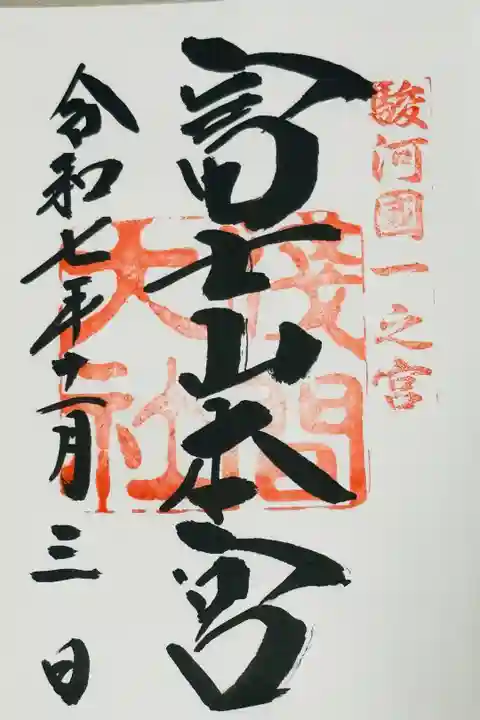 駿河國一之宮
富士山本宮
淺間大社
令和七年十一月三日